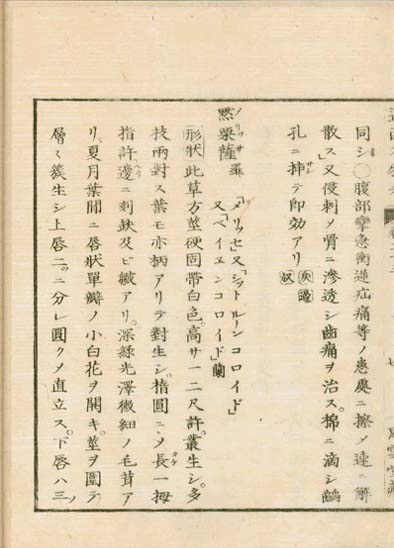 同シ○腹部攣急衝逆疝痛等ノ患處ニ擦メ速ニ解
散ス」又侵刺メ骨ニ滲透シ齒痛ヲ治ス。綿ニ滴シ齲
孔ニ挿テ即効アリ
黙栗薩 メリッサ 羅 「メリッセ」又「シットルーンコロイド」
又「ベイエンコロイド」蘭
形狀此草方莖硬固帶白色。高サ一二尺許。叢生シ。多
枝兩對ス葉モ亦柄アリテ對生シ。橢圓ニメ長一拇
指許邊ニ刺鉄及ビ皺アリ。深緑光澤微細ノ毛茸ア
リ。夏月葉間ニ唇狀單瓣ノ小白花ヲ開キ。莖ヲ圍テ
層ミ簇生シ上唇二ツニ分レ圓クメ直立ス。下唇ハ三ツ